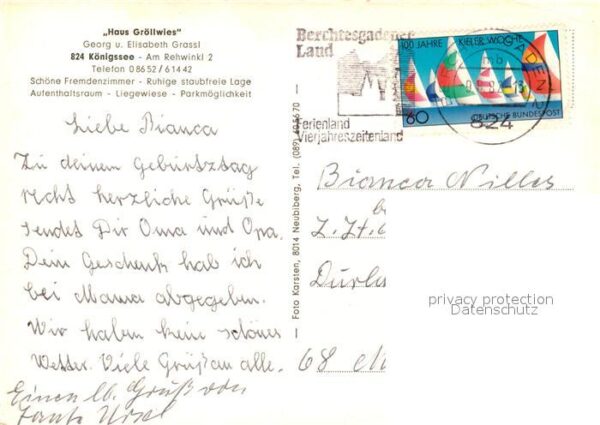 „Haus Gröllwies"
Georg u. Elisabeth Grassl
824 Königssee - Am Rehwinkl 2
Telefon 0 86 52 / 6 14 42
Schöne Fremdenzimmer - Ruhige staubfreie Lage
Aufenthaltsraum - Liegewiese - Parkmöglichkeit
Liebe Bianca
Zu deinem Geburtstag
recht herzliche Grüße
sendet Dir Oma und Opa.
Dein Geschenk hab ich
bei Mama abgegeben.
Wir haben keine schönes
Wetter. Viele Grüße an alle.
Einen lb. Gruß von
Tante Ursel
Foto Karsten, 8014 Neubiberg, Tel. (089)
Berchtesgadener
Land
Ferienland
Vierjahreszeitenland
100 JAHRE KIELER WOCHE
60
DEUTSCHE BUNDESPOST
824
Bianca Nilles
z. Zt.
68
privacy protection
Datenschutz